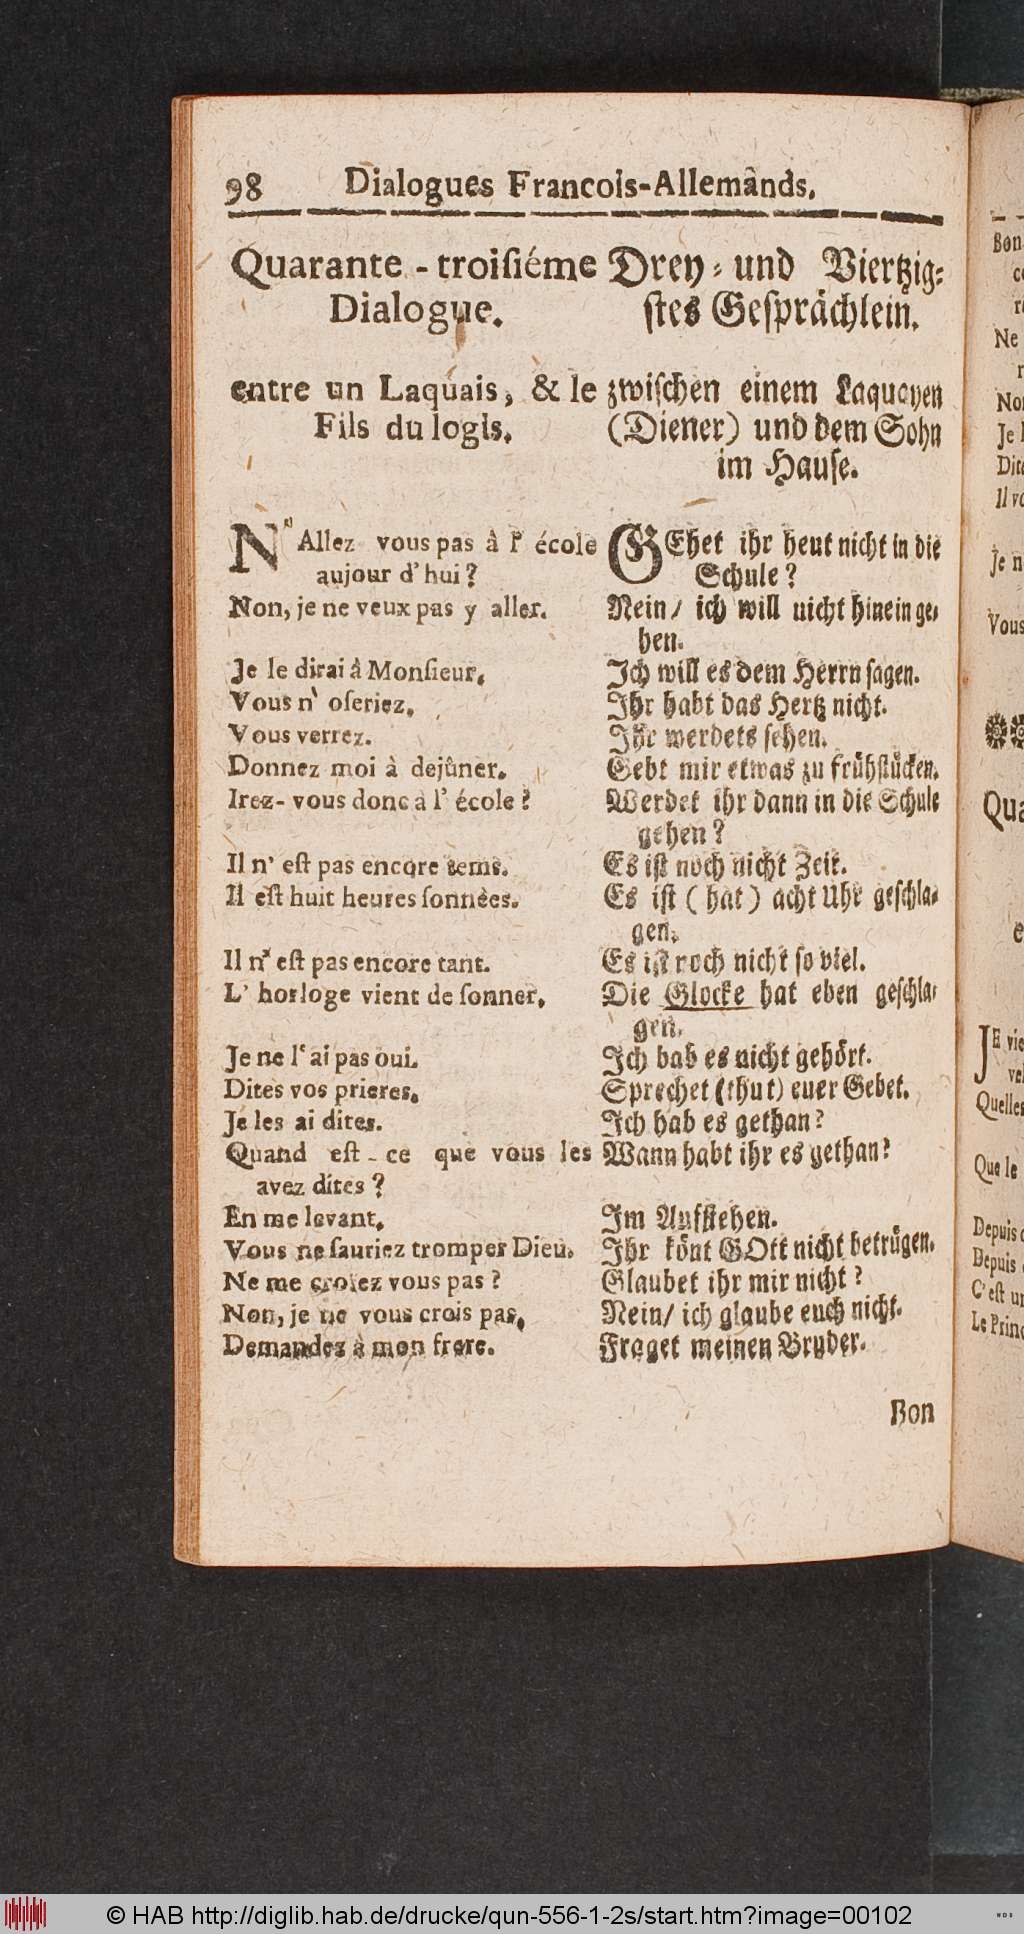 98 Dialogues Francois-Allemands.
Quarante-troisiéme
Dialogue.
entre un Laquais, & le
Fils du logis.
N'Allez vous pas â l' école
aujour d'hui?
Non, je ne veux pas y aller.
Je le dirai â Monsieur.
Vous n' oseriez.
Vous verrez.
Donnez moi à dejûner.
Irez-vous donc à l' école?
Il n' est pas encore tems.
Il est huit heures sonnèes.
Il n' est pas encore tant.
L' horloge vient de sonner.
Je ne l' ai pas oui.
Dites vos prieres.
Je les ai dites.
Quand est-ce que vous les
avez dites?
En me levant.
Vous ne sauriez tromper Dieu.
Ne me croiez vous pas?
Non, je ne vous crois pas.
Demandez à mon frere.
Drey- und Viertzig-
stes Gesprächlein.
zwischen einem Laquayen
(Diener) und dem Sohn
im Hause.
GEhet ihr heut nicht in die
Schule?
Nein/ ich will nicht hinein ge-
hen.
Ich will es dem Herrn sagen.
Ihr habt das Hertz nicht.
Ihr werdets sehen.
Gebt mir etwas zu frühstücken.
Werdet ihr dann in die Schule
gehen?
Es ist noch nicht Zeit.
Es ist (hat) acht Uhr geschla-
gen.
Es ist noch nicht so viel.
Die Glocke hat eben geschla-
gen.
Ich hab es nicht gehört.
Sprechet (thut) euer Gebet.
Ich hab es gethan?
Wann habt ihr es gethan?
Im Aufstehen.
Ihr könt GOtt nicht betrügen.
Glaubet ihr mir nicht?
Nein/ ich glaube euch nicht.
Fraget meinen Bruder.
Bon
Ne
Je
Vous
Qua
JE vie
Quelles
Que le
Depuis
Depuis
C'est un
Le Princ
© HAB http://diglib.hab.de/drucke/qun-556-1-2s/start.htm?image=00102